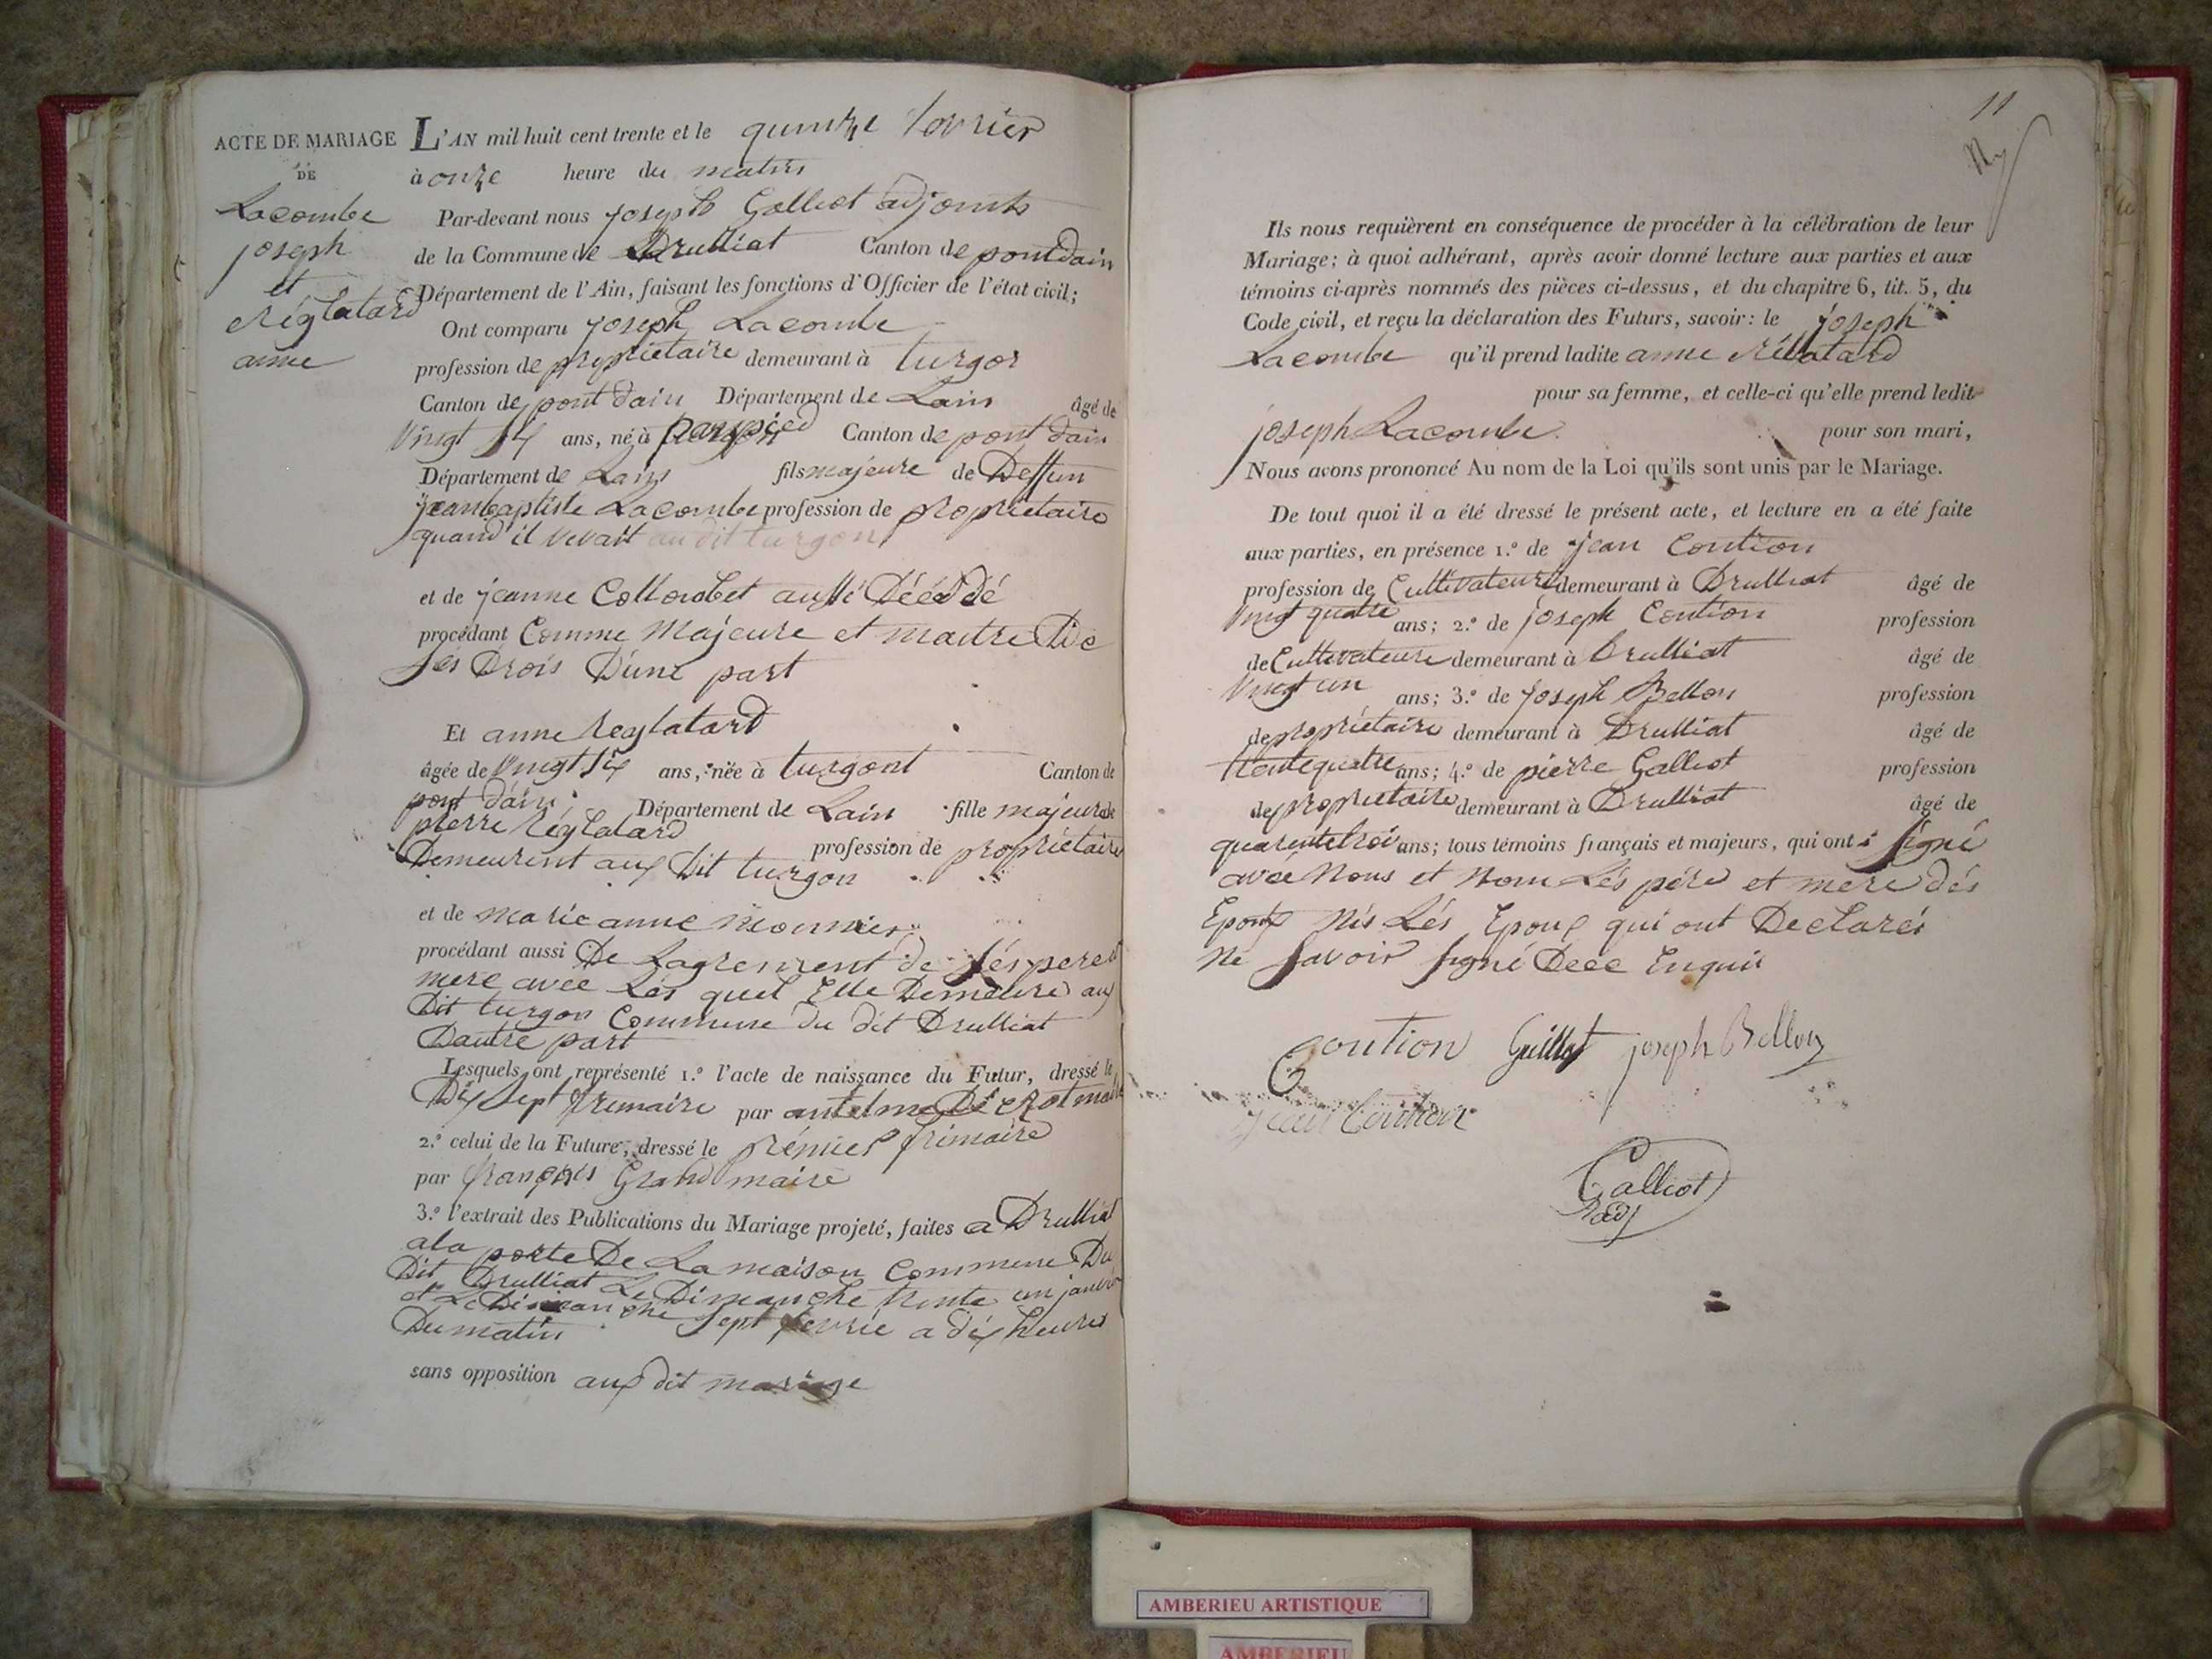 ACTE DE MARIAGE
DE
Lacombe
joseph
et
Réglatard
anne
L'AN mil huit cent trente et le quinze fovrier
à onze heure du matin
Par-devant nous joseph Galliot adjoint
de la Commune de Drulliat Canton de pontdain
Département de l'Ain, faisant les fonctions d'Officier de l'état civil;
Ont comparu joseph Lacombe
profession de propriétaire demeurant à turgon
Canton de pont dain Département de Lain âgé de
vingt six ans, né à Canton de pont dain
Département de Lain fils majeure de Deffun
jeanbaptiste Lacombe profession de propriétaire
quand il vivait au dit turgon
et de jeanne Collombet aussi Décédé
procédant Comme Majeure et maitre De
Ses Drois D'une part
Et anne Reglatard
âgée de vingt six ans, née à turgont Canton de
pont dain Département de Lain fille majeur de
pierre Réglatard profession de propriétaire
Demeurent aux Dit turgon
et de marie anne monnier
procédant aussi De Lagrement de Sés pere et
mere avec Lés quel Elle Demeure aux
Dit turgon Commune du dit Drulliat
Dautre part
Lesquels ont représenté 1.º l'acte de naissance du Futur, dressé le
Dix sept frimaire par antelme
2.º celui de la Future, dressé le prémier frimaire
par françois Grand maire
3.º l'extrait des Publications du Mariage projeté, faites a Drulliat
ala porte De La maison Commune Du
Dit Drulliat Le Dimanche trente un janvier
et Le Dimanche Sept fevrié a dix heures
Du matin
sans opposition aux dit mariage
11
Ils nous requièrent en conséquence de procéder à la célébration de leur
Mariage; à quoi adhérant, après avoir donné lecture aux parties et aux
témoins ci-après nommés des pièces ci-dessus, et du chapitre 6, tit. 5, du
Code civil, et reçu la déclaration des Futurs, savoir: le joseph
Lacombe qu'il prend ladite anne Réllatard
pour sa femme, et celle-ci qu'elle prend ledit
joseph Lacombe pour son mari,
Nous avons prononcé Au nom de la Loi qu'ils sont unis par le Mariage.
De tout quoi il a été dressé le présent acte, et lecture en a été faite
aux parties, en présence 1.º de jean Contion
profession de Cultivateure demeurant à Drulliat âgé de
vingt quatre ans; 2.º de joseph Contion profession
de Cultivateure demeurant à Drulliat âgé de
vingt un ans; 3.º de joseph Bellon profession
de propriétaire demeurant à Drulliat âgé de
trente quatre ans; 4.º de pierre Galliot profession
de propriétaire demeurant à Drulliat âgé de
quarente trois ans; tous témoins français et majeurs, qui ont signé
avec Nous et Nom Lés pére et mere dés
Epoux Nis Lés Epoux qui ont Declarés
Ne Savoir signé Dece Enquis
Contion Guillot joseph Bellon
jean Contion
Galliot
adj
AMBERIEU ARTISTIQUE
AMBERIEU